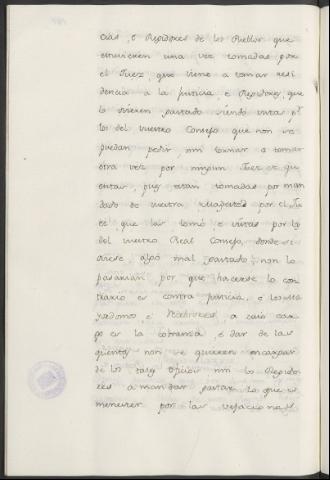 cias, e Rexidores de los Pueblos que
estuvieren una vez tomadas por
el Juez, que viene a tomar resi
dencia a la justicia, e Rexidores, que
lo vieren pasado siendo vistas pr
los del vuestro Consejo que non se
puedan pedir, nin tornar a tomar
otra vez por ningun Juez de qu
entas, pues estan tomadas por man
dado de vuestra Magestad por el Ju
ez, que las tomó e vistas por los
del vuestro Real Consejo, donde si
oviese, algo mal pasado, non lo
pasarian por que hacerse lo con
trario es contra justicia, e los Ma
yordomos e Receptores, a cuio car
go es la cobranza, e dar de las
quentas non se quieren encargar
de los tales oficios nin los Rexido
res a mandar gastar lo que es
menester por las vejaciones